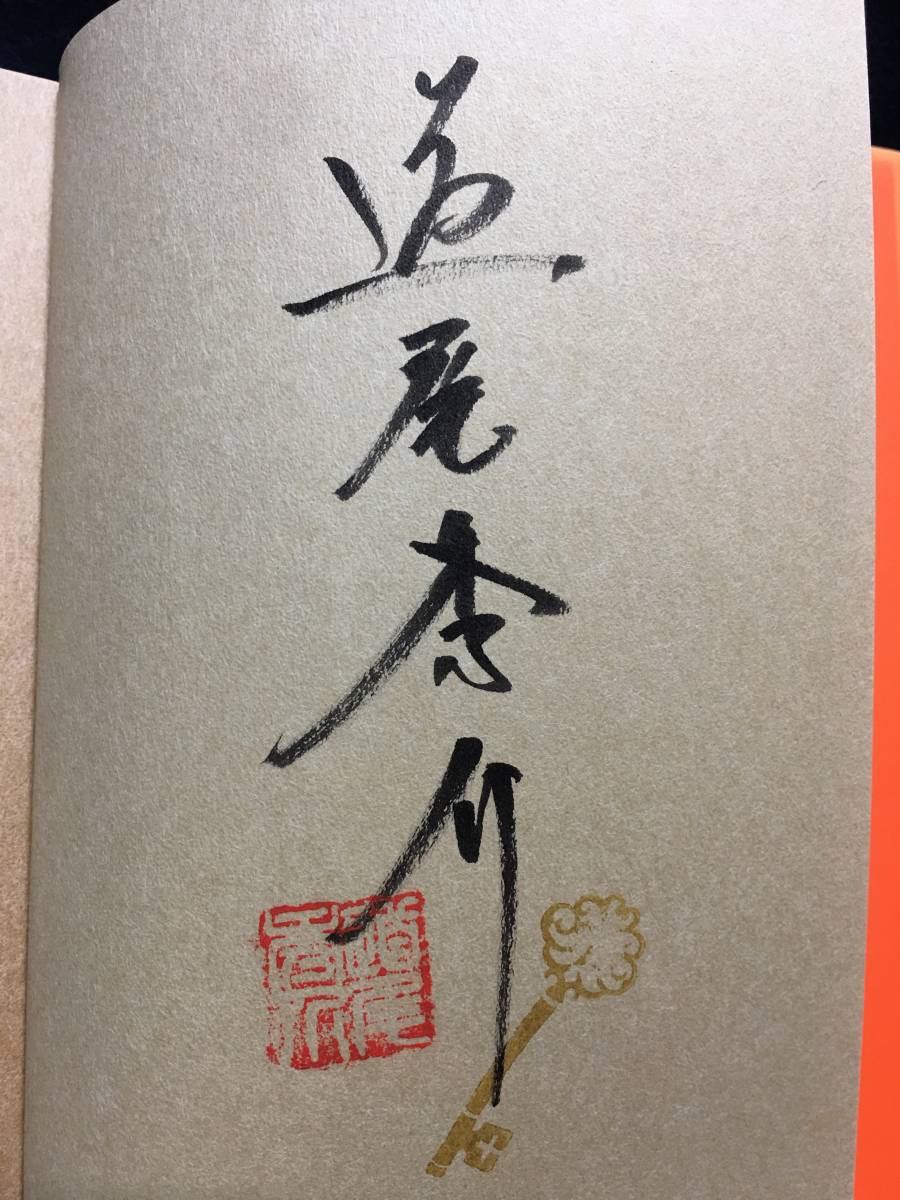 道尾秀介
道尾
秀介